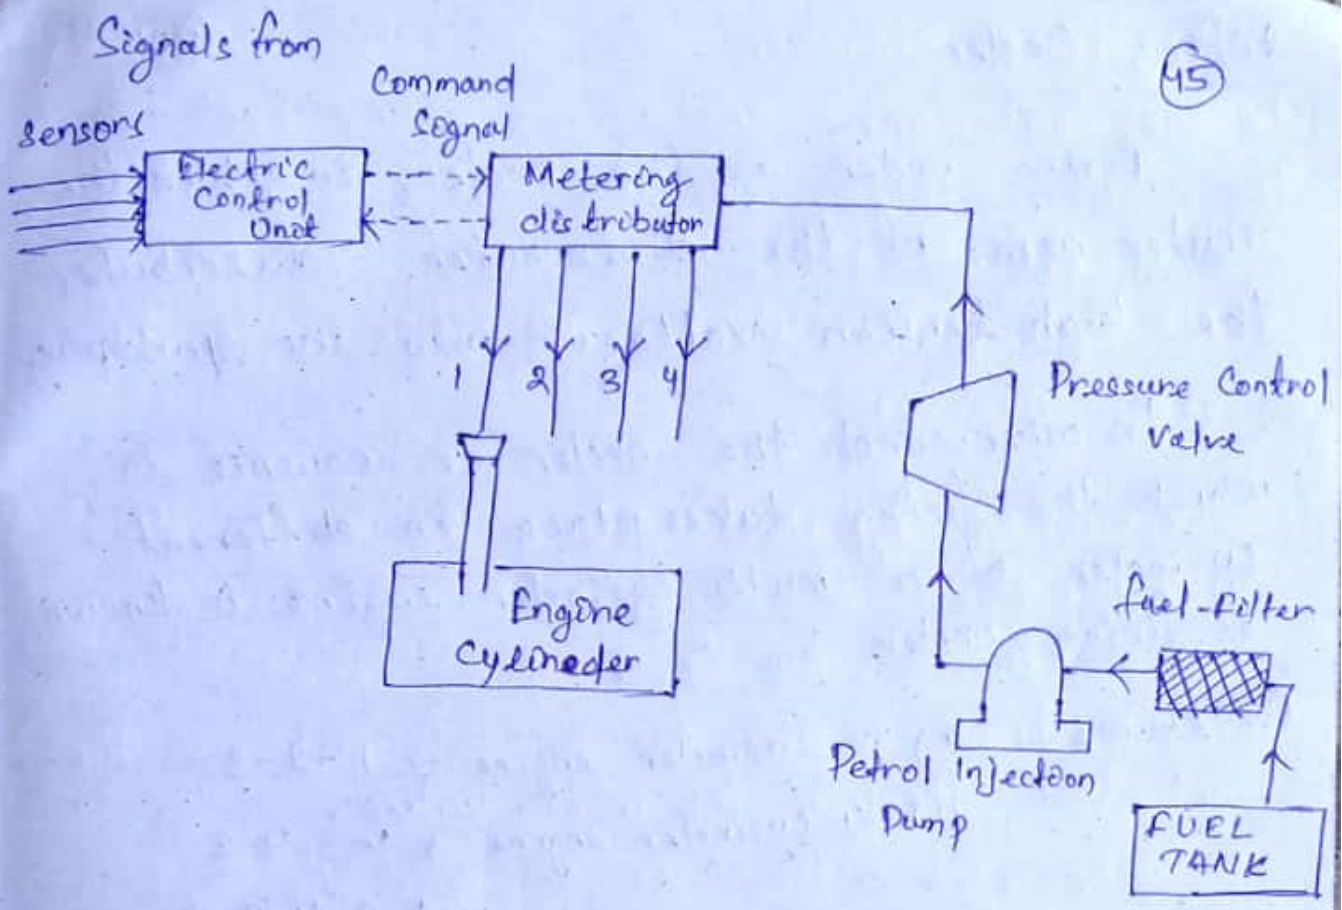 Signals from
sensors
Command
Signal
45
Electric
Control
Unit
Metering
distributor
1 2 3 4
Pressure Control
valve
Engine
Cylineder
fuel-filter
Petrol Injection
Pump
FUEL
TANK